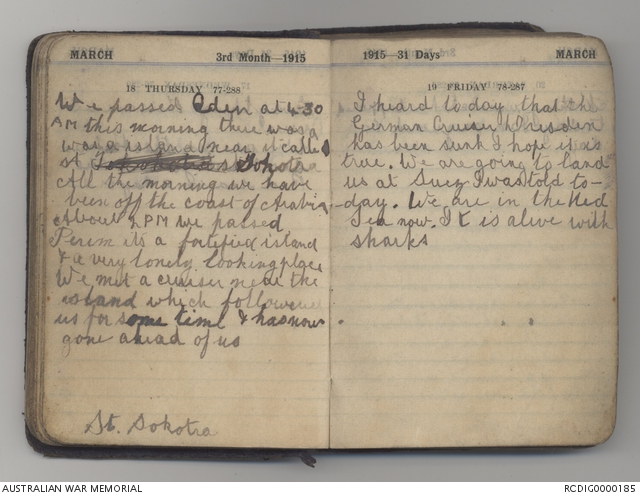 MARCH 3rd Month—1915
18 THURSDAY 77-288
We passed Eden at 4-30
AM this morning there was a
was a island near it called
St Sokotra
All the morning we have
been off the coast of Arabia
About 4 PM we passed
Perim its a fortified island
& a very lonely looking place
We met a cruiser near the
island which followed
us for some time & has now
gone ahead of us
St. Sokotra
1915—31 Days MARCH
19 FRIDAY 78-287
I heard to day that the
German Cruiser Dresden
has been sunk I hope it is
true. We are going to land
us at Suez I was told to-
day. We are in the Red
Sea now. It is alive with
sharks
AUSTRALIAN WAR MEMORIAL
RCDIG0000185